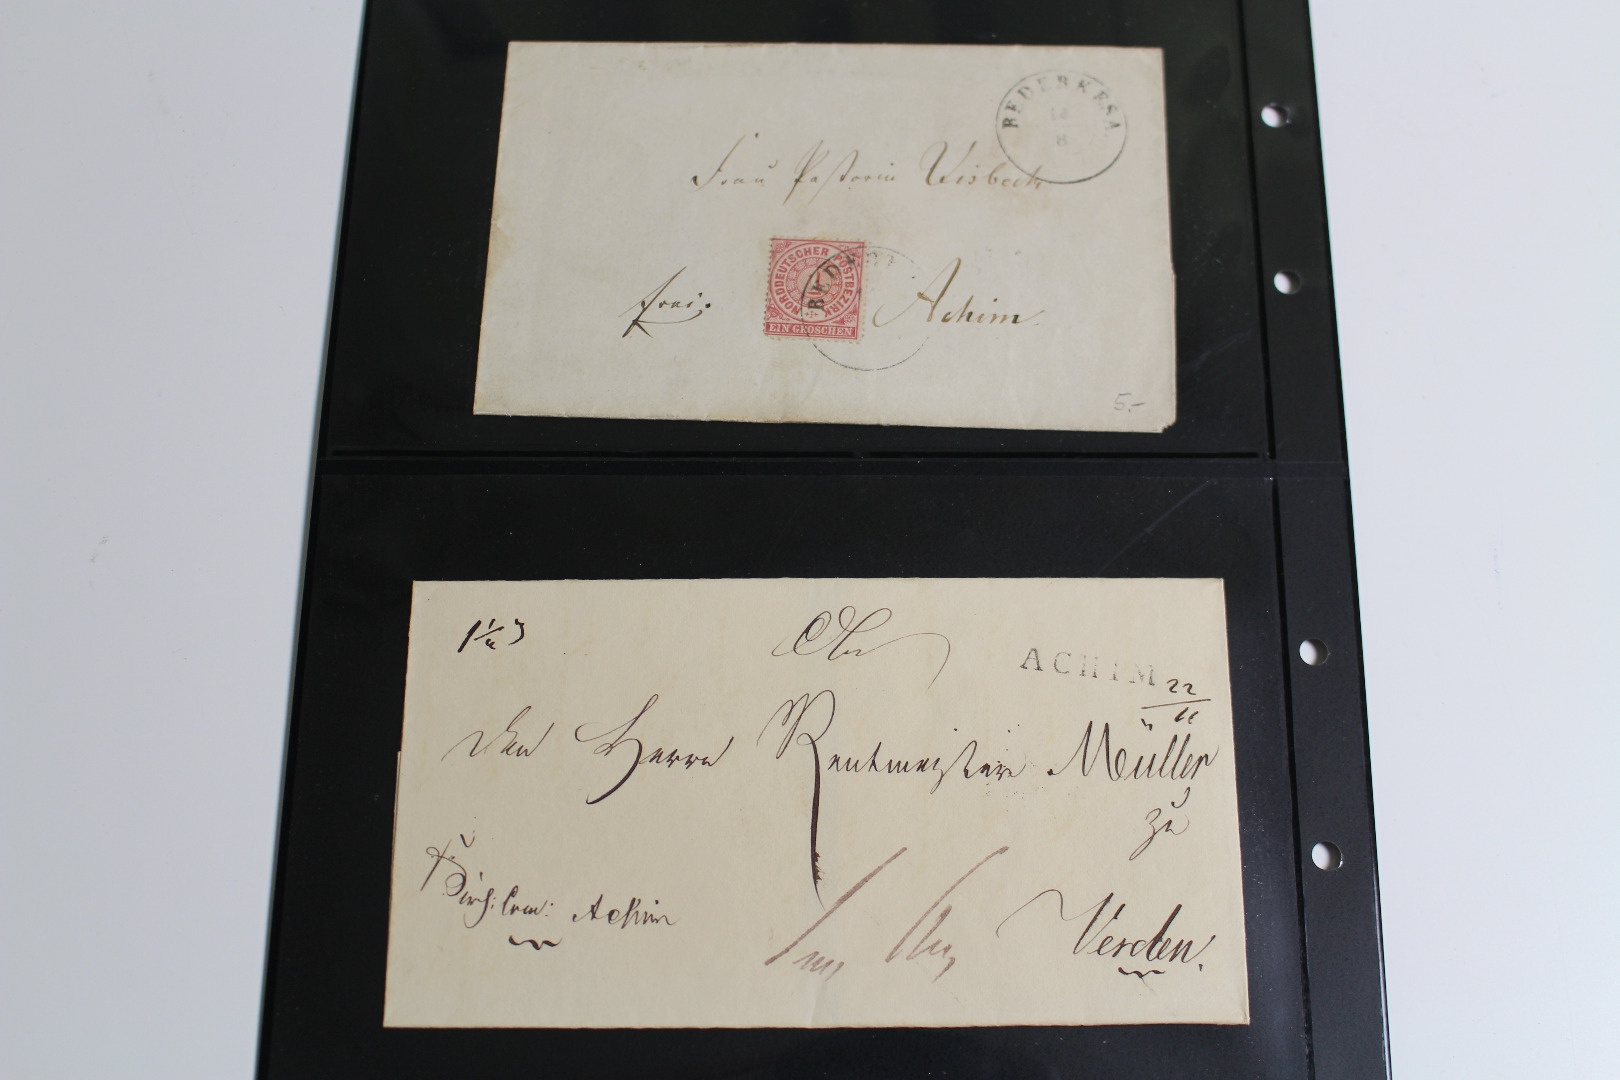 BEDERKESA
8
Frau Pastorin Visbeck
NORDDEUTSCHER POSTBEZIRK
EIN GROSCHEN
BEDERK
frei.
Achim.
5.-
1 1/4
ACHIM
22/11
Den Herrn Rentmeister Müller
zu
Verden.
Kirch: Com: Achim